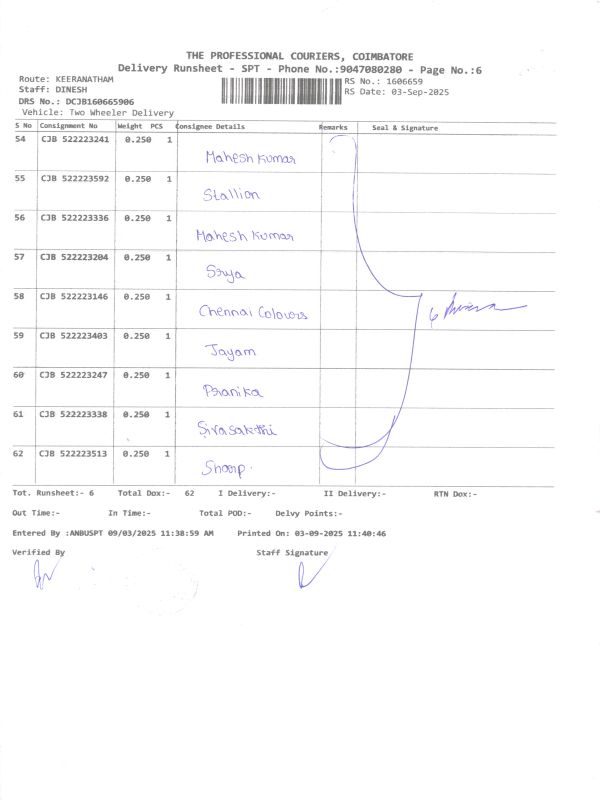 THE PROFESSIONAL COURIERS, COIMBATORE
Delivery Runsheet - SPT - Phone No.:9047080280 - Page No.:6
Route: KEERANATHAM
RS No.: 1606659
Staff: DINESH
RS Date: 03-Sep-2025
DRS No.: DCJB160665906
Vehicle: Two Wheeler Delivery
S No Consignment No Weight PCS Consignee Details Remarks Seal & Signature
54 CJB 522223241 0.250 1 Mahesh Kumar
55 CJB 522223592 0.250 1 Stallion
56 CJB 522223336 0.250 1 Mahesh Kumar
57 CJB 522223204 0.250 1 Srya
58 CJB 522223146 0.250 1 Chennai Colours
59 CJB 522223403 0.250 1 Jayam
60 CJB 522223247 0.250 1 Pranika
61 CJB 522223338 0.250 1 Sivasakthi
62 CJB 522223513 0.250 1 Sharp
Tot. Runsheet:- 6 Total Dox:- 62 I Delivery:- II Delivery:- RTN Dox:-
Out Time:- In Time:- Total POD:- Delvy Points:-
Entered By :ANBUSPT 09/03/2025 11:38:59 AM Printed On: 03-09-2025 11:40:46
Verified By Staff Signature